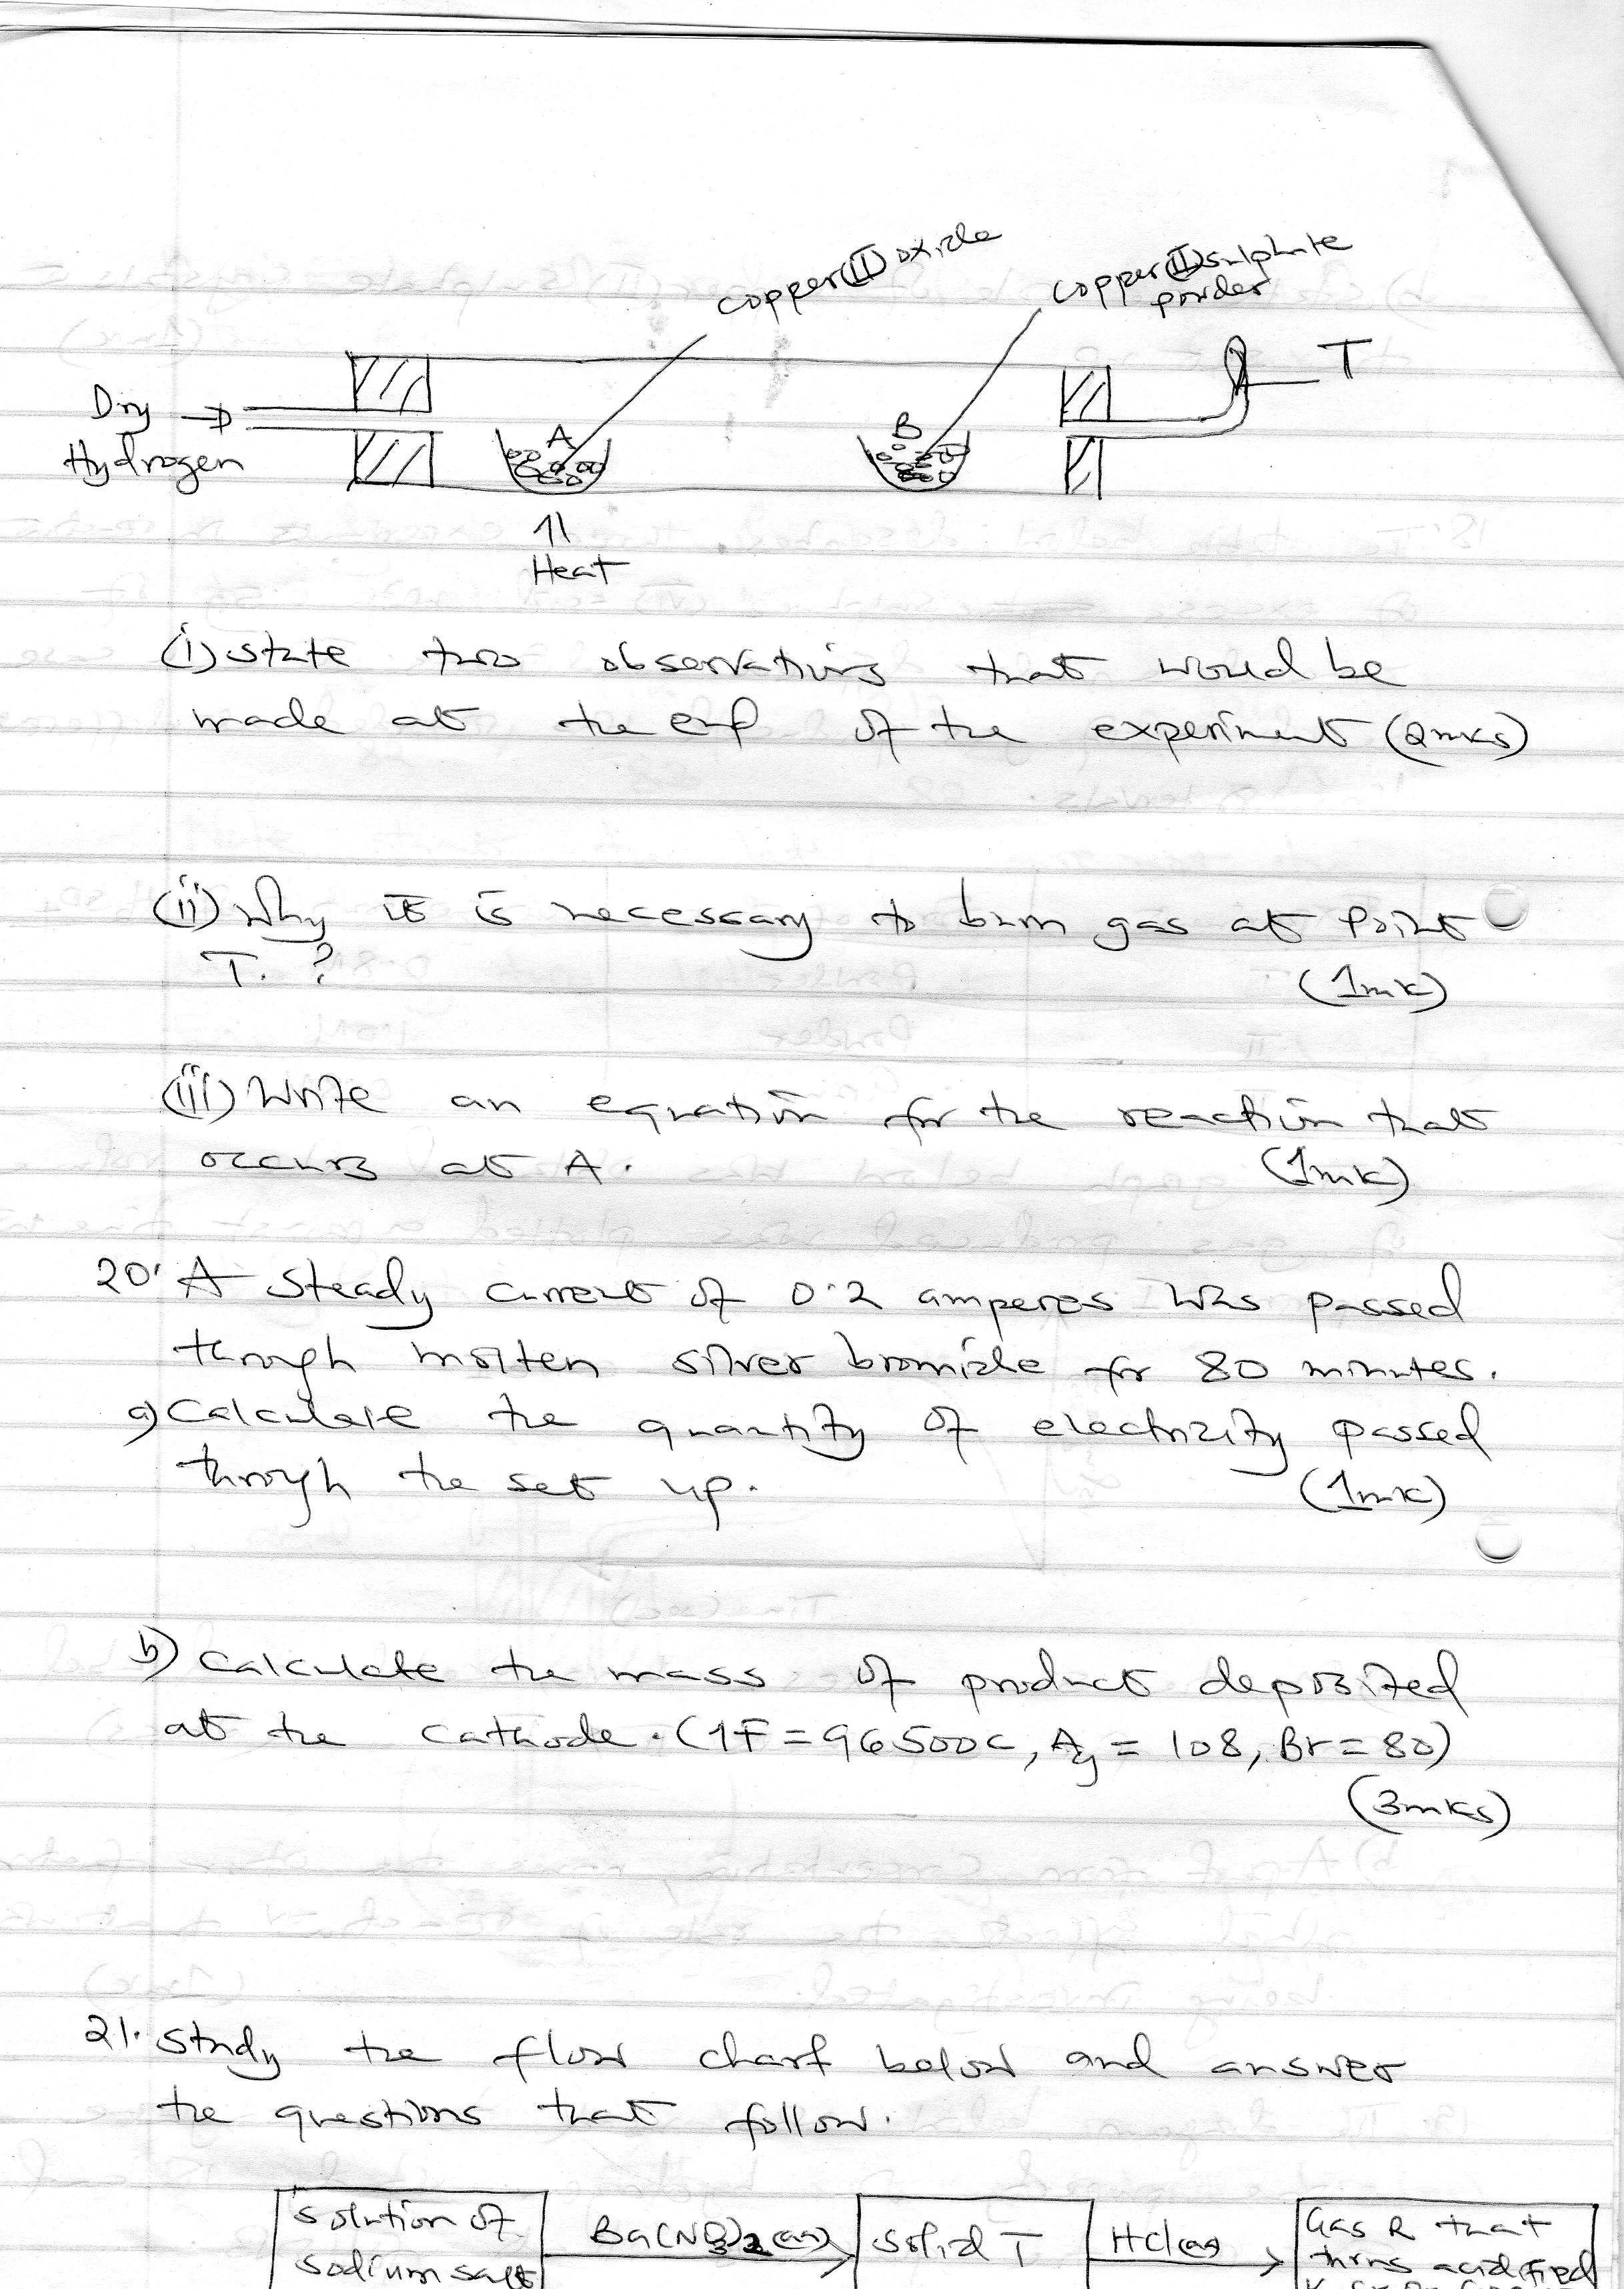 copper(II) oxide
copper(II) sulphate
powder
T
Dry
Hydrogen
A
B
Heat
(i) state two observations that would be
made at the end of the experiment (2mks)
(ii) Why it is necessary to burn gas at Point
T. ?
(1mk)
(iii) Write an equation for the reaction that
occurs at A. (1mk)
20. A steady current of 0.2 amperes was passed
through molten silver bromide for 80 minutes.
a) Calculate the quantity of electricity passed
through the set up. (1mk)
b) Calculate the mass of product deposited
at the cathode. (1F = 96500C, Ag = 108, Br = 80)
(3mks)
21. Study the flow chart below and answer
the questions that follow.
Solution of
sodium salt
Ba(NO3)2(aq)
Solid T
HCl(aq)
Gas R that
turns acidified